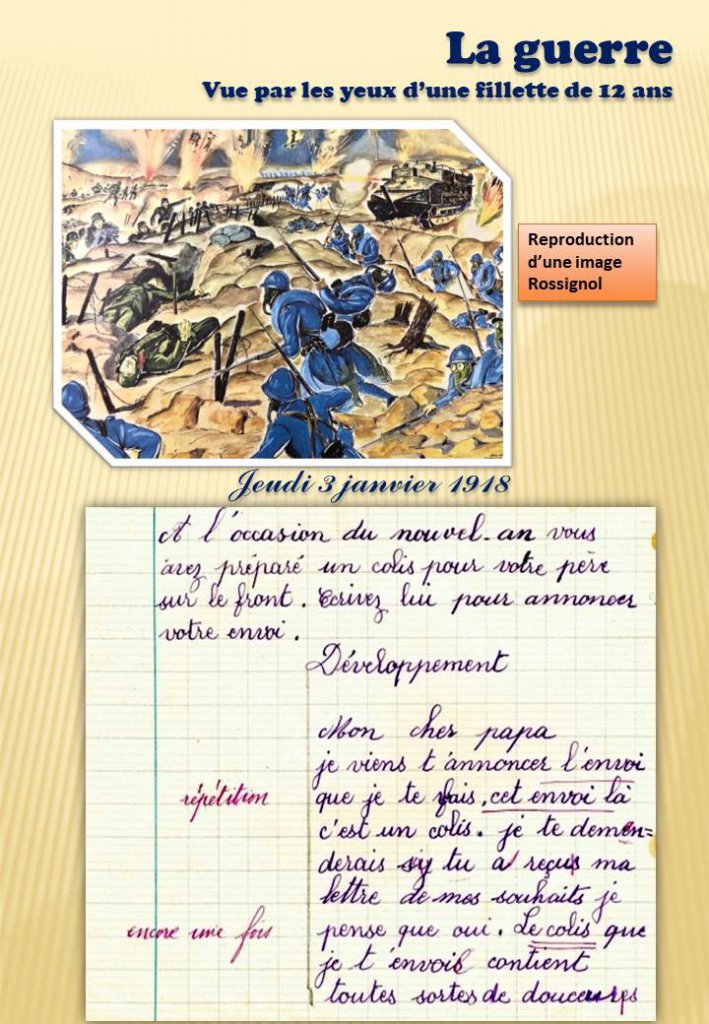 La guerre
Vue par les yeux d’une fillette de 12 ans
Reproduction
d’une image
Rossignol
Jeudi 3 janvier 1918
A l'occasion du nouvel-an vous
avez préparé un colis pour votre père
sur le front. Ecrivez lui pour annoncer
votre envoi.
Développement
Mon cher papa
je viens t'annoncer l'envoi
répétition
que je te fais, cet envoi là
c'est un colis. je te demen=
derais sy tu as reçus ma
lettre de mes souhaits je
encore une fois
pense que oui. Le colis que
je t'envois contient
toutes sortes de douceurs